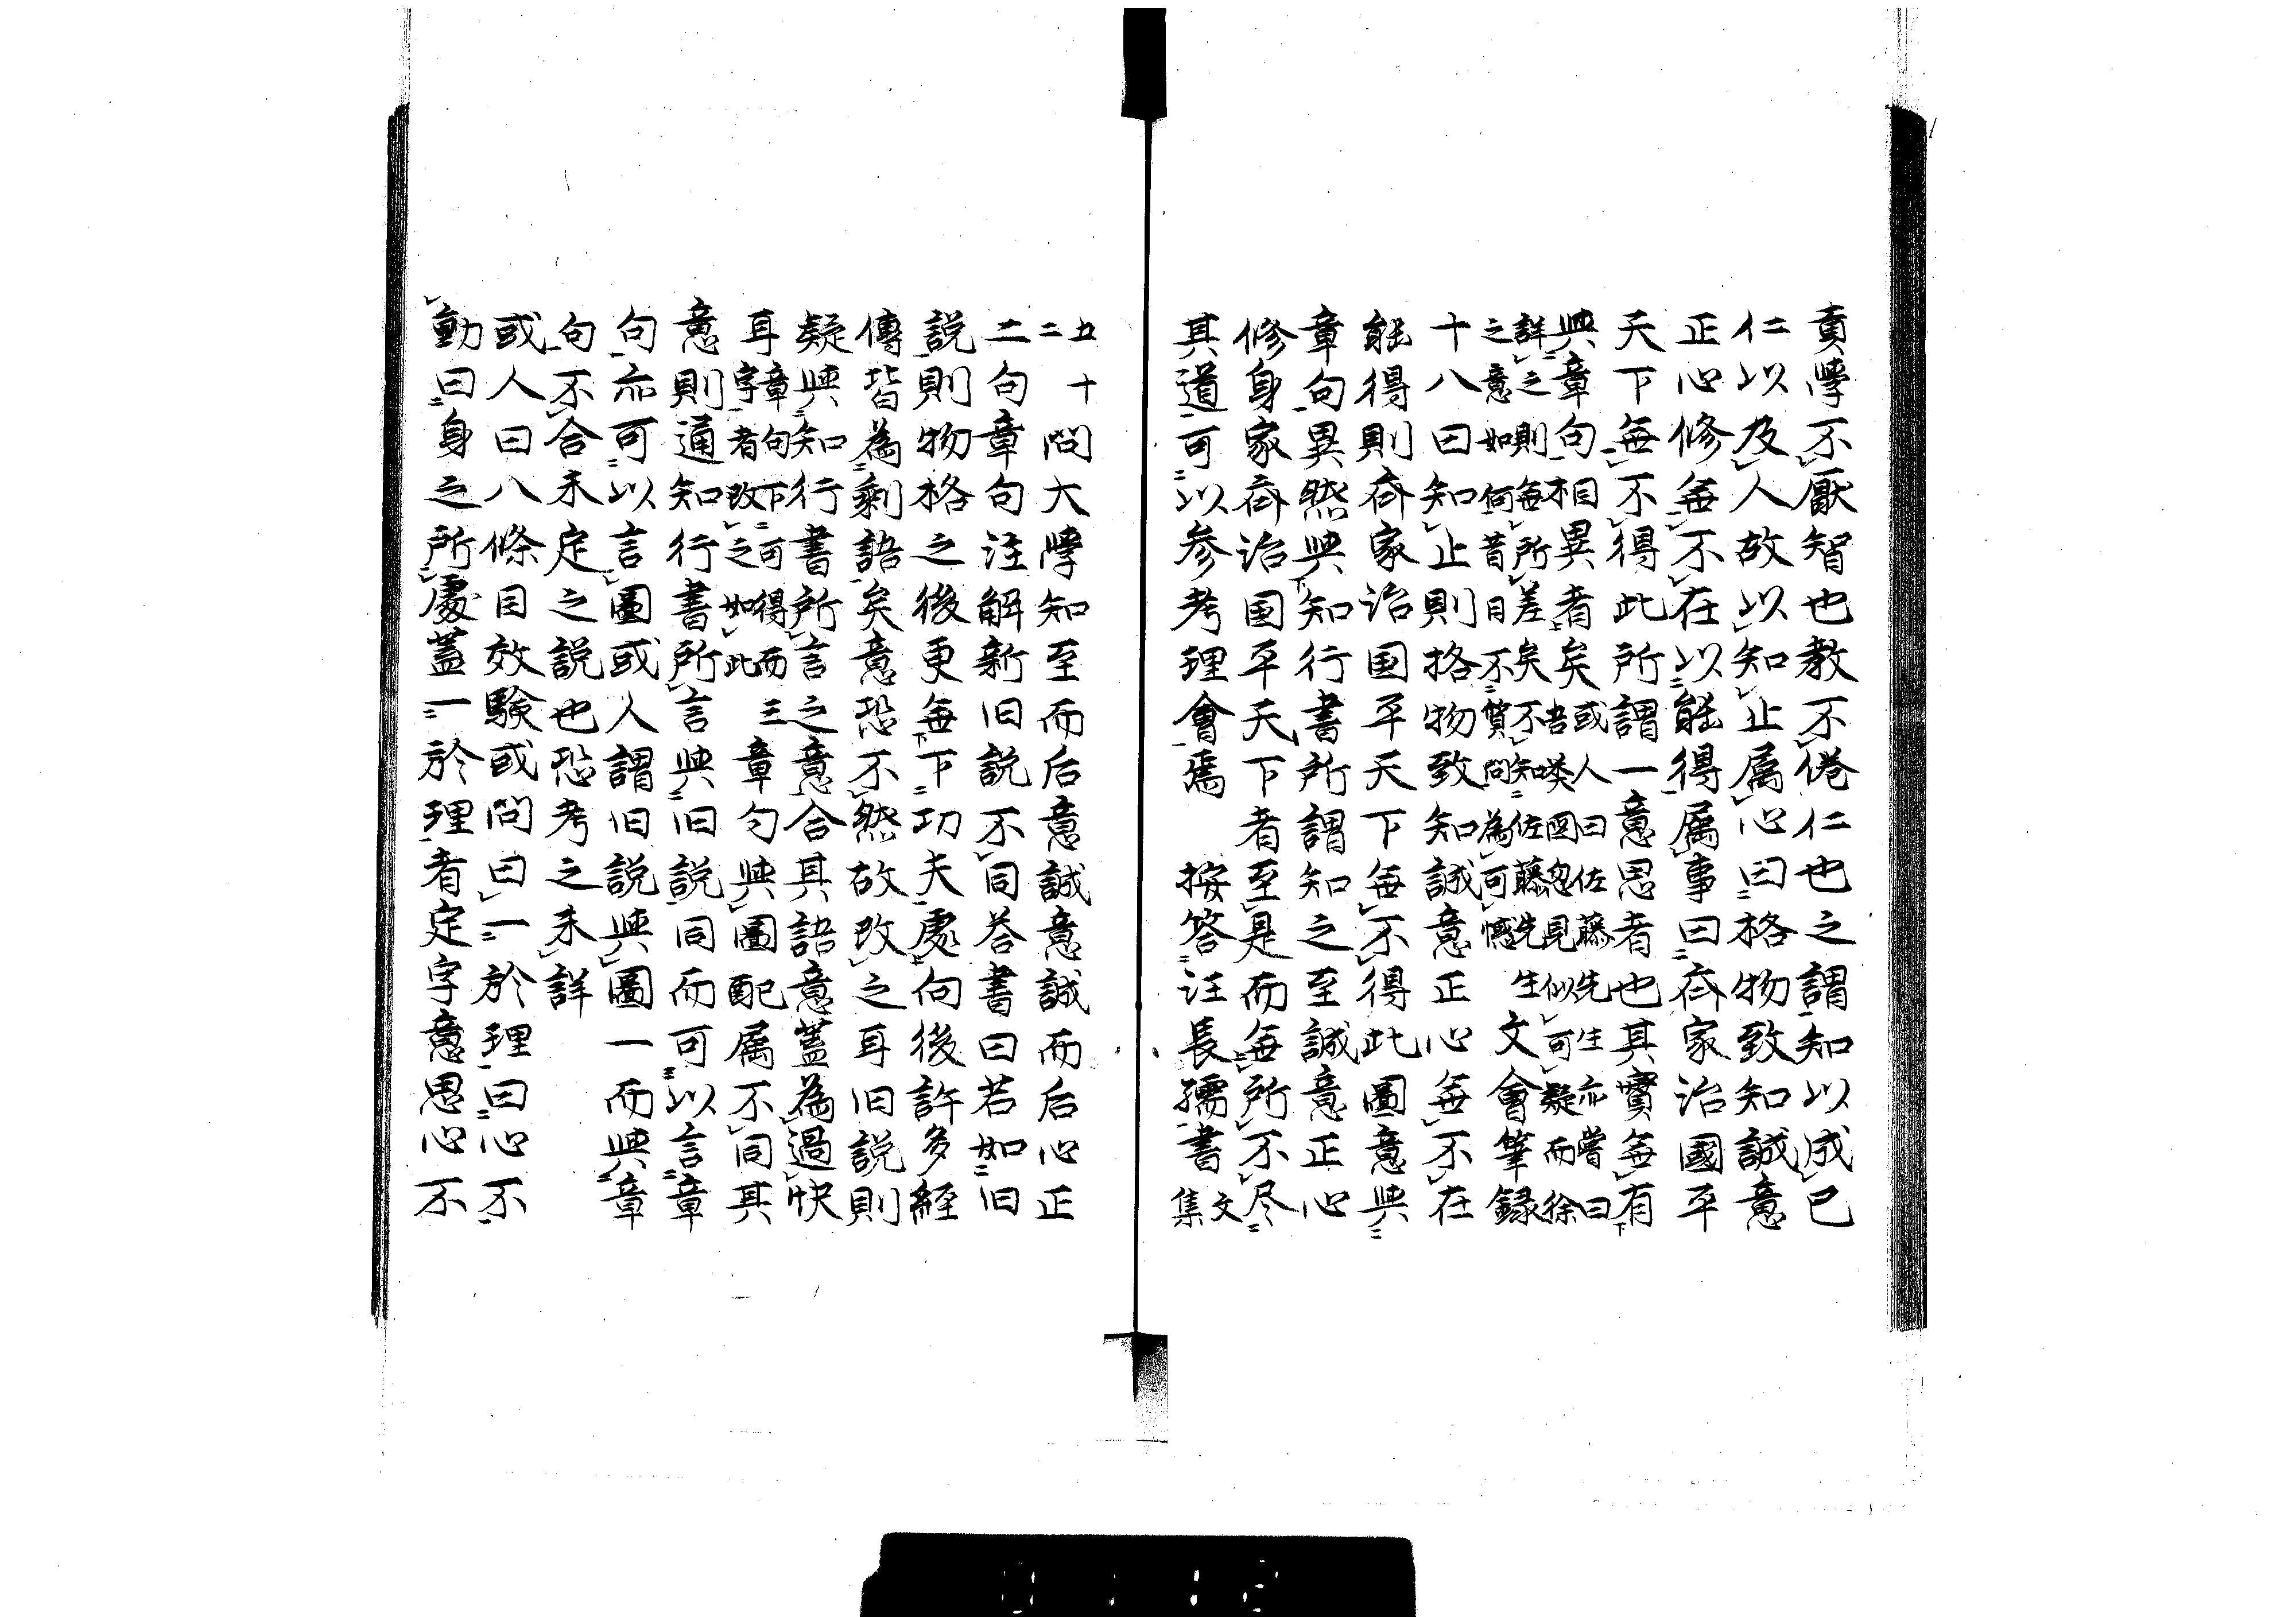 貢學不厭智也教不倦仁也之謂知以成已
仁以及人故以知止属心曰格物致知誠意
正心修無不在以能得属事曰斉家治國平
天下無不得此所謂一意思者也其實無有
與章句相異者矣或人曰佐藤先生亦嘗曰
吾嘆圖忽見似可疑而徐
詳之則無所差矣不知佐藤先生
之意如何昔目不質問為可憾文會筆録
十八曰知止則格物致知誠意正心無不在
能得則斉家治国平天下無不得此圖意與
章句異然與知行書所謂知之至誠意正心
修身家斉治国平天下者至是而無所不尽
其道可以参考理會焉 按答汪長孺書文集
五十
二問大學知至而后意誠意誠而后心正
二句章句注解新旧説不同答書曰若如旧
説則物格之後更無下功夫處向後許多経
傳皆為剰語矣意恐不然故改之耳旧説則
疑與知行書所言之意合其語意蓋為過快
耳章句下可得而三
字者改之如此章句與圖配属不同其
意則通知行書所言與旧説同而可以言章
句亦可以言圖或人謂旧説與圖一而與章
句不合未定之説也恐考之未詳
或人曰八條目效験或問曰一於理曰心不
動曰身之所處蓋一於理者定字意思心不